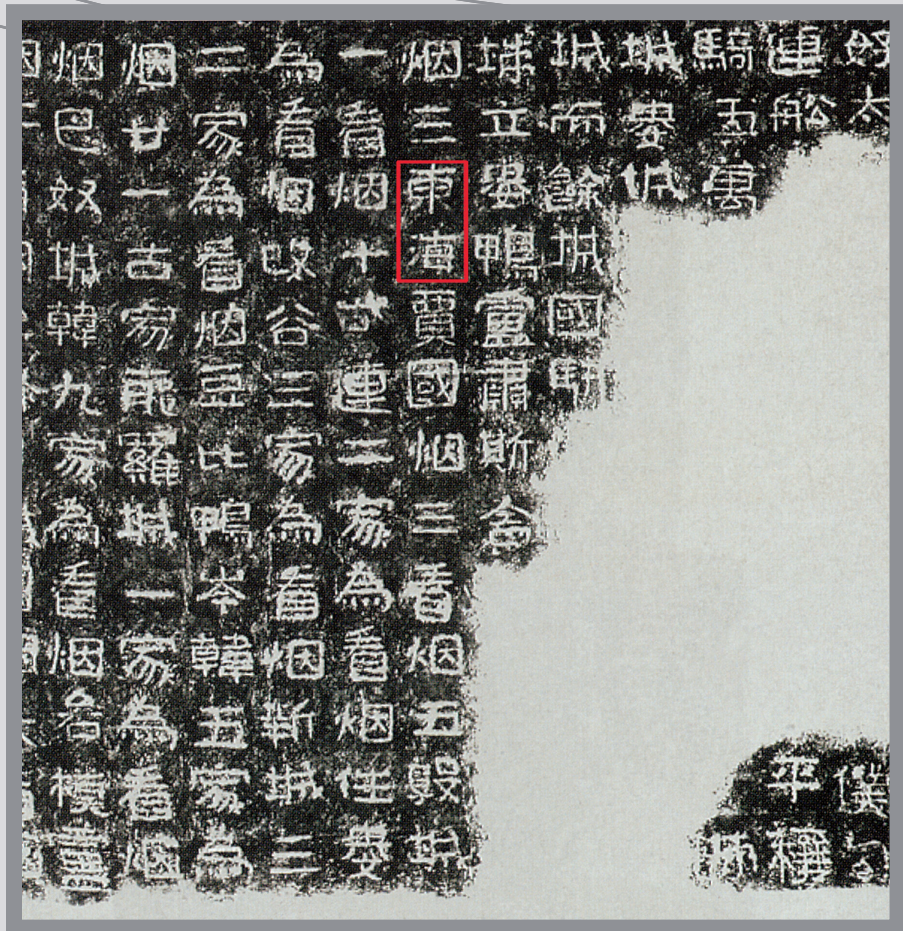 好太 僕勾
連船 平穰
騎五萬
城婁城
城而餘城國
立婁鴨盧肅斯舍
烟三東海賈國烟三看烟五敦城
一看烟十 連二家為看烟住婁
為看烟改谷三家為看烟新城三
二家為看烟豆比鴨岑韓五家為
烟廿一古家能羅城一家為看烟
烟巴奴城韓九家為看烟各模盧